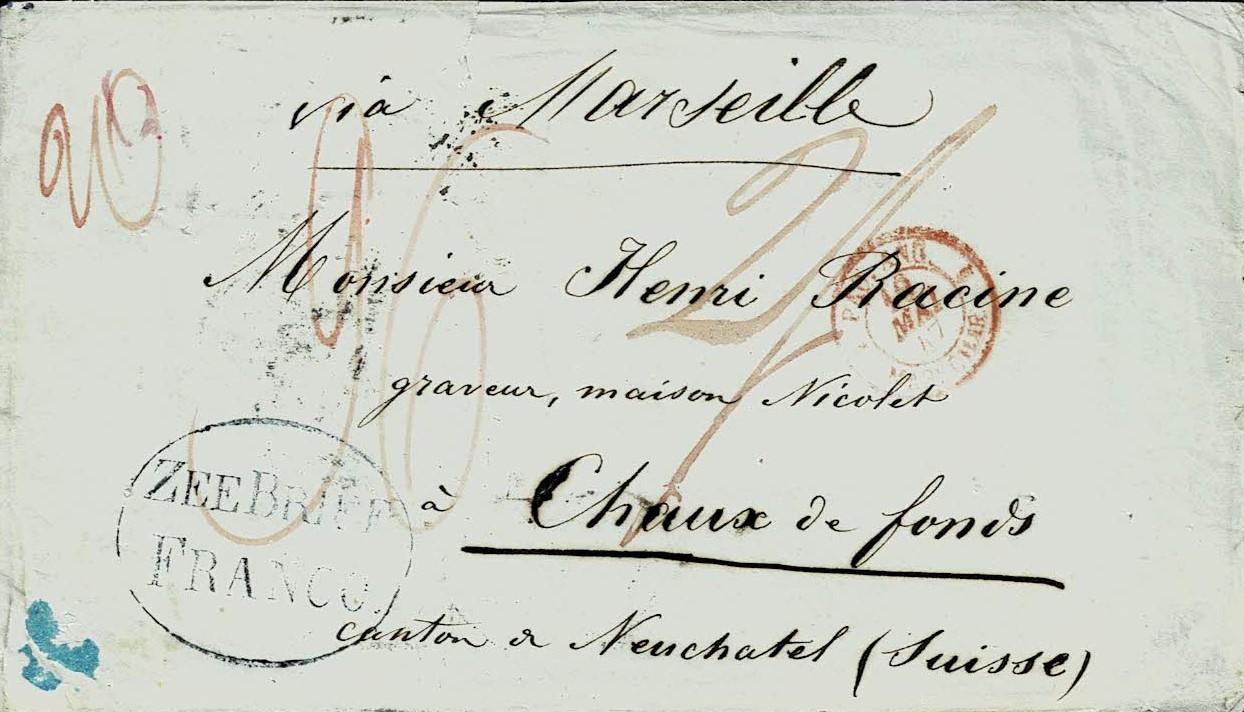 via Marseille
Monsieur Henri Racine
graveur, maison Nicolet
à Chaux de fonds
canton de Neuchatel (Suisse)
ZEEBRIEF
FRANCO.
MAI